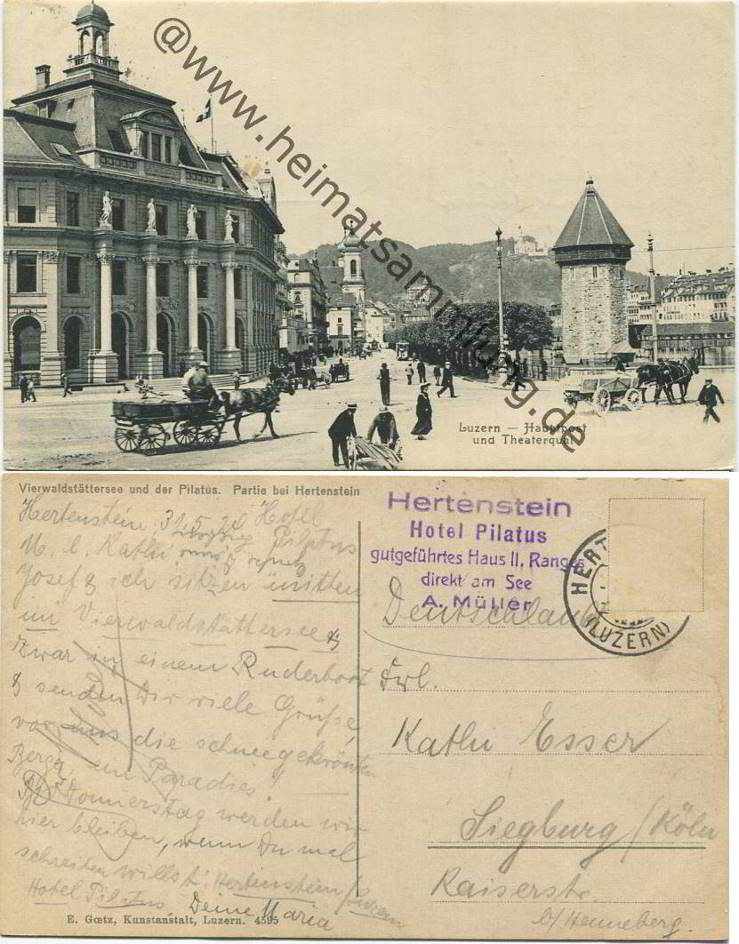 @www.heimatsammlung.de
Luzern – Hauptpost
und Theaterquai
Vierwaldstättersee und der Pilatus. Partie bei Hertenstein
Hertenstein 31.5.20 Hotel
Pilatus
M. l. Kathi
Josef & ich sitzen mitten
im Vierwaldstättersee &
zwar in einem Ruderboot
& senden Dir viele Grüße,
vor uns die schneegekrönten
Berge, ein Paradies!
Bis Donnerstag werden wir
hier bleiben, wenn Du mal
schreiben willst: Hertenstein / Luzern
Hotel Pilatus. Deine Maria
E. Gœtz, Kunstanstalt, Luzern. 4595
Hertenstein
Hotel Pilatus
gutgeführtes Haus II. Ranges
direkt am See
A. Müller
HERT
(LUZERN)
Deutschland
Frl.
Kathi Esser
Siegburg / Köln
Kaiserstr.
b/ Henneberg.